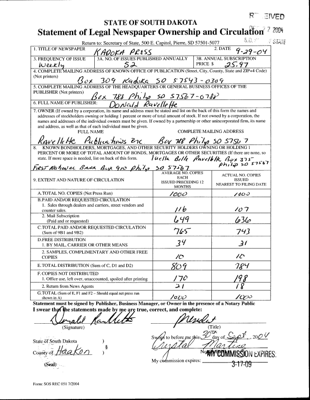 RECEIVED
STATE OF SOUTH DAKOTA
Statement of Legal Newspaper Ownership and Circulation
Return to: Secretary of State, 500 E. Capitol, Pierre, SD 57501-5077
1. TITLE OF NEWSPAPER KADOKA PRESS
2. DATE 9-29-04
3. FREQUENCY OF ISSUE Weekly
3A. NO. OF ISSUES PUBLISHED ANNUALLY 52
3B. ANNUAL SUBSCRIPTION PRICE $ 25.97
4. COMPLETE MAILING ADDRESS OF KNOWN OFFICE OF PUBLICATION (Street, City, County, State and ZIP+4 Code)
(Not Printers) Box 309 Kadoka SD 57543-0309
5. COMPLETE MAILING ADDRESS OF THE HEADQUARTERS OR GENERAL BUSINESS OFFICES OF THE
PUBLISHER (Not Printers) Box 788 Philip SD 57567-0788
6. FULL NAME OF PUBLISHER: Donald Ravellette
7. OWNER (If owned by a corporation, its name and address must be stated and also the names and
addresses of stockholders owning or holding 1 percent or more of total amount of stock. If not owned by a corporation, the
names and addresses of the individual owners must be given. If owned by a partnership or other unincorporated firm, its name
and address, as well as that of each individual must be given.
FULL NAME COMPLETE MAILING ADDRESS
Ravellette Publications Inc Box 788 Philip SD 57567
8. KNOWN BONDHOLDERS, MORTGAGES, AND OTHER SECURITY HOLDERS OWNING OR HOLDING 1
PERCENT OR MORE OF TOTAL AMOUNT OF BONDS, MORTGAGES OR OTHER SECURITIES (If there are none, so
state. If more space is needed, list on back of this form.
Philip SD 57567
First National Bank Box 910 Philip SD 57567
9. EXTENT AND NATURE OF CIRCULATION
AVERAGE NO. COPIES EACH ISSUED PRECEDING 12 MONTHS
ACTUAL NO. COPIES ISSUED NEAREST TO FILING DATE
A. TOTAL NO. COPIES (Net Press Run) 1000 1000
B. PAID AND/OR REQUESTED CIRCULATION
1. Sales through dealers and carriers, street vendors and
counter sales 116 107
2. Mail Subscription
(Paid and or requested) 649 636
C. TOTAL PAID AND/OR REQUESTED CIRCULATION
(Sum of 9B1 and 9B2) 765 743
D. FREE DISTRIBUTION
1. BY MAIL, CARRIER OR OTHER MEANS 34 31
2. SAMPLES, COMPLIMENTARY AND OTHER FREE
COPIES 10 10
E. TOTAL DISTRIBUTION (Sum of C, D1 and D2) 809 784
F. COPIES NOT DISTRIBUTED
1. Office use, left over, unaccounted, spoiled after printing 170 198
2. Return from News Agents 21 18
G. TOTAL (Sum of E, F1 and F2 - Should equal press run
shown in A) 1000 1000
Statement must be signed by Publisher, Business Manager, or Owner in the presence of a Notary Public
I swear that the statements made by me are true, correct, and complete:
Donald Ravellette President
(Signature) (Title)
State of South Dakota )
County of Haakon )
(Seal)
Sworn to before me this day of Sept 2004
Crystal
My commission expires: MY COMMISSION EXPIRES
3-17-09
Form: SOS REC 051 7/2004